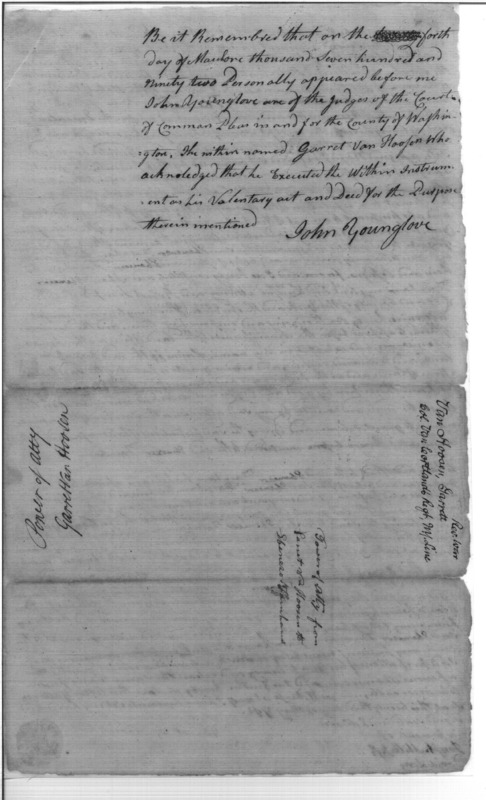 Be it Remembered that on the forth
day of May one thousand Seven hundred and
Ninety two Personally appeared before me
John Younglove one of the Judges of the Court
of Common Pleas in and for the County of Washin-
gton, The within named Garret Van Hoosen Who
acknoledged that he Executed the Within Instrum-
ent as his Valentary act and Deed for the Purpose
therein mentioned
John Younglove
Power of atty
Garret Van Hoosen
Power of atty from
Garrit Van Hoosen to
Van Hoosen, Garrett
Rev War
Col. Van Cortlandts Regt. NY Line